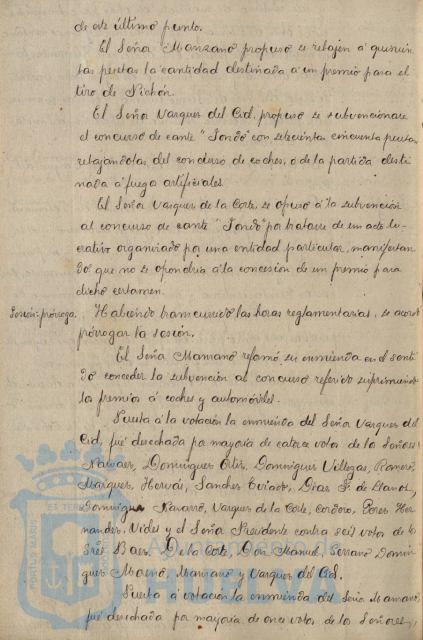 de este último punto.
El Señor Manzano propuso se rebajen á quinien
tas pesetas la cantidad destinada á un premio para el
tiro de Pichón.
El Señor Vazques del Cid, propuso se subvencionase
el concurso de cante "Jondo" con setecientas cincuenta pesetas
rebajándolas del concurso de coches, ó de la partida desti
nada á fuegos artificiales.
El Señor Vasques de la Corte, se opuso á la subvención
al concurso de cante "Jondo" por tratarse de un acto lu-
crativo organizado por una entidad particular, manifestan
do que no se opondría á la concesion de un premio para
dicho certamen.
Sesión: prórroga. Habiendo transcurrido las horas reglamentarias, se acordó
prórrogar la sesión.
El Señor Manzano reformó su enmienda en el senti
do conceder la subvención al concurso referido suprimiendo
los premios á coches y automóviles.
Puesta á la votación la enmienda del Señor Vazques del
Cid, fué desechada por mayoria de catorce votos de los Señores
Narvaes, Domingues Ortis, Domingues Villegas, Romero,
Marques, Hervás, Sanches Oviedo, Dias F. de Llanos,
Domingues Navarro, Vazques de la Corte, Cordero, Peres Her-
nandes, Vides y el Señor Presidente contra seis votos de los
Sres Baes, De la Corte, Don Manuel, Serrano, Domin
gues Moreno, Manzano y Vazques del Cid.
Puesta á votación la enmienda del Señor Manzano,
fué desechada por mayoria de once votos de los Señores,
PORTUS MARIS
Ayuntamiento de